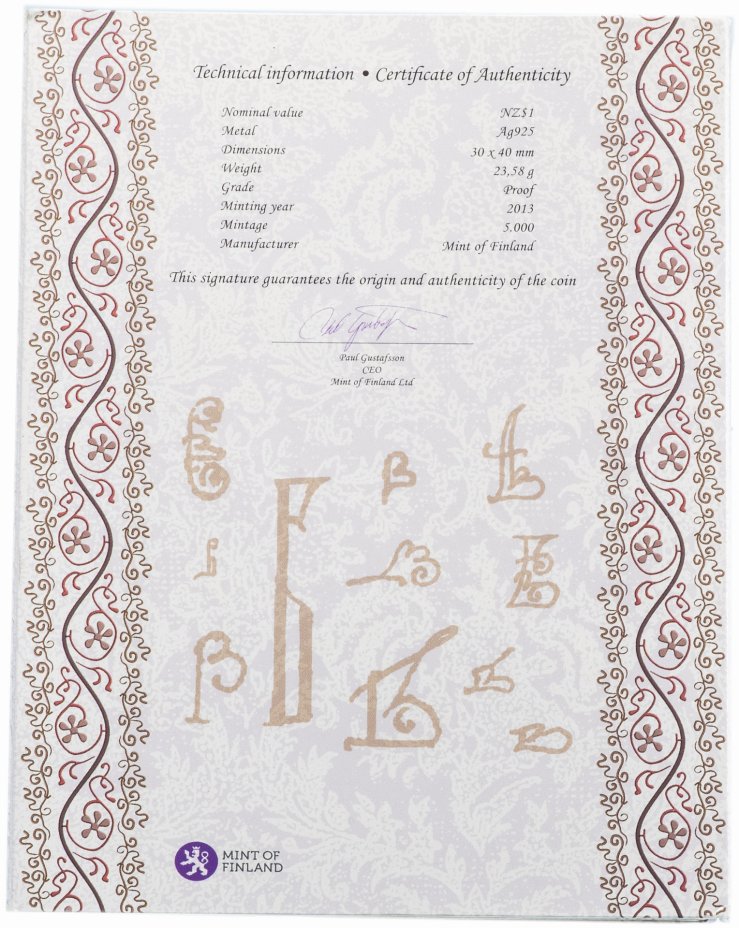 Technical information • Certificate of Authenticity
Nominal value NZ$1
Metal Ag925
Dimensions 30 x 40 mm
Weight 23,58 g
Grade Proof
Minting year 2013
Mintage 5.000
Manufacturer Mint of Finland
This signature guarantees the origin and authenticity of the coin
Paul Gustafsson
CEO
Mint of Finland Ltd
MINT OF
FINLAND